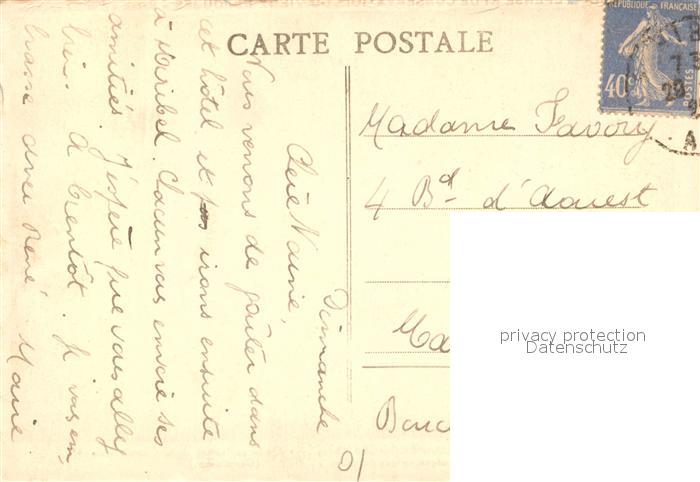 CARTE POSTALE
Dimanche
Chère Naine,
Nous venons de goûter dans
cet hôtel et irons ensuite
à Miribel. Chacun vous envoie ses
amitiés. J'espère que vous allez
bien. A bientôt. Je vous em-
brasse avec René. Marie
REPUBLIQUE FRANÇAISE
40c
POSTES
Madame Favory
4 Bd d'Aouest
Ma
Bouc
privacy protection
Datenschutz